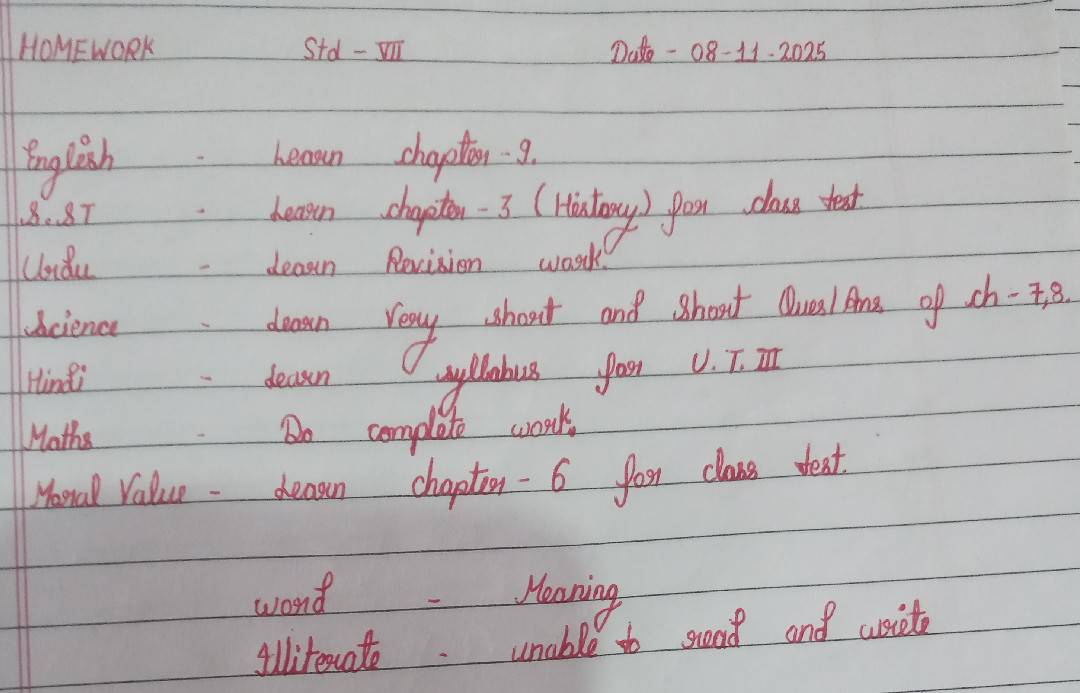 HOMEWORK Std - VII Date - 08-11-2025
English - Learn chapter - 9.
S.ST - Learn chapter - 3 (History) for class test
Urdu - Learn Revision work.
Science - Learn Very short and Short Ques/Ans of ch - 7,8.
Hindi - Learn syllabus for U.T. III
Maths - Do complete work.
Moral Value - Learn chapter - 6 for class test.
Word - Meaning
Illiterate - unable to read and write